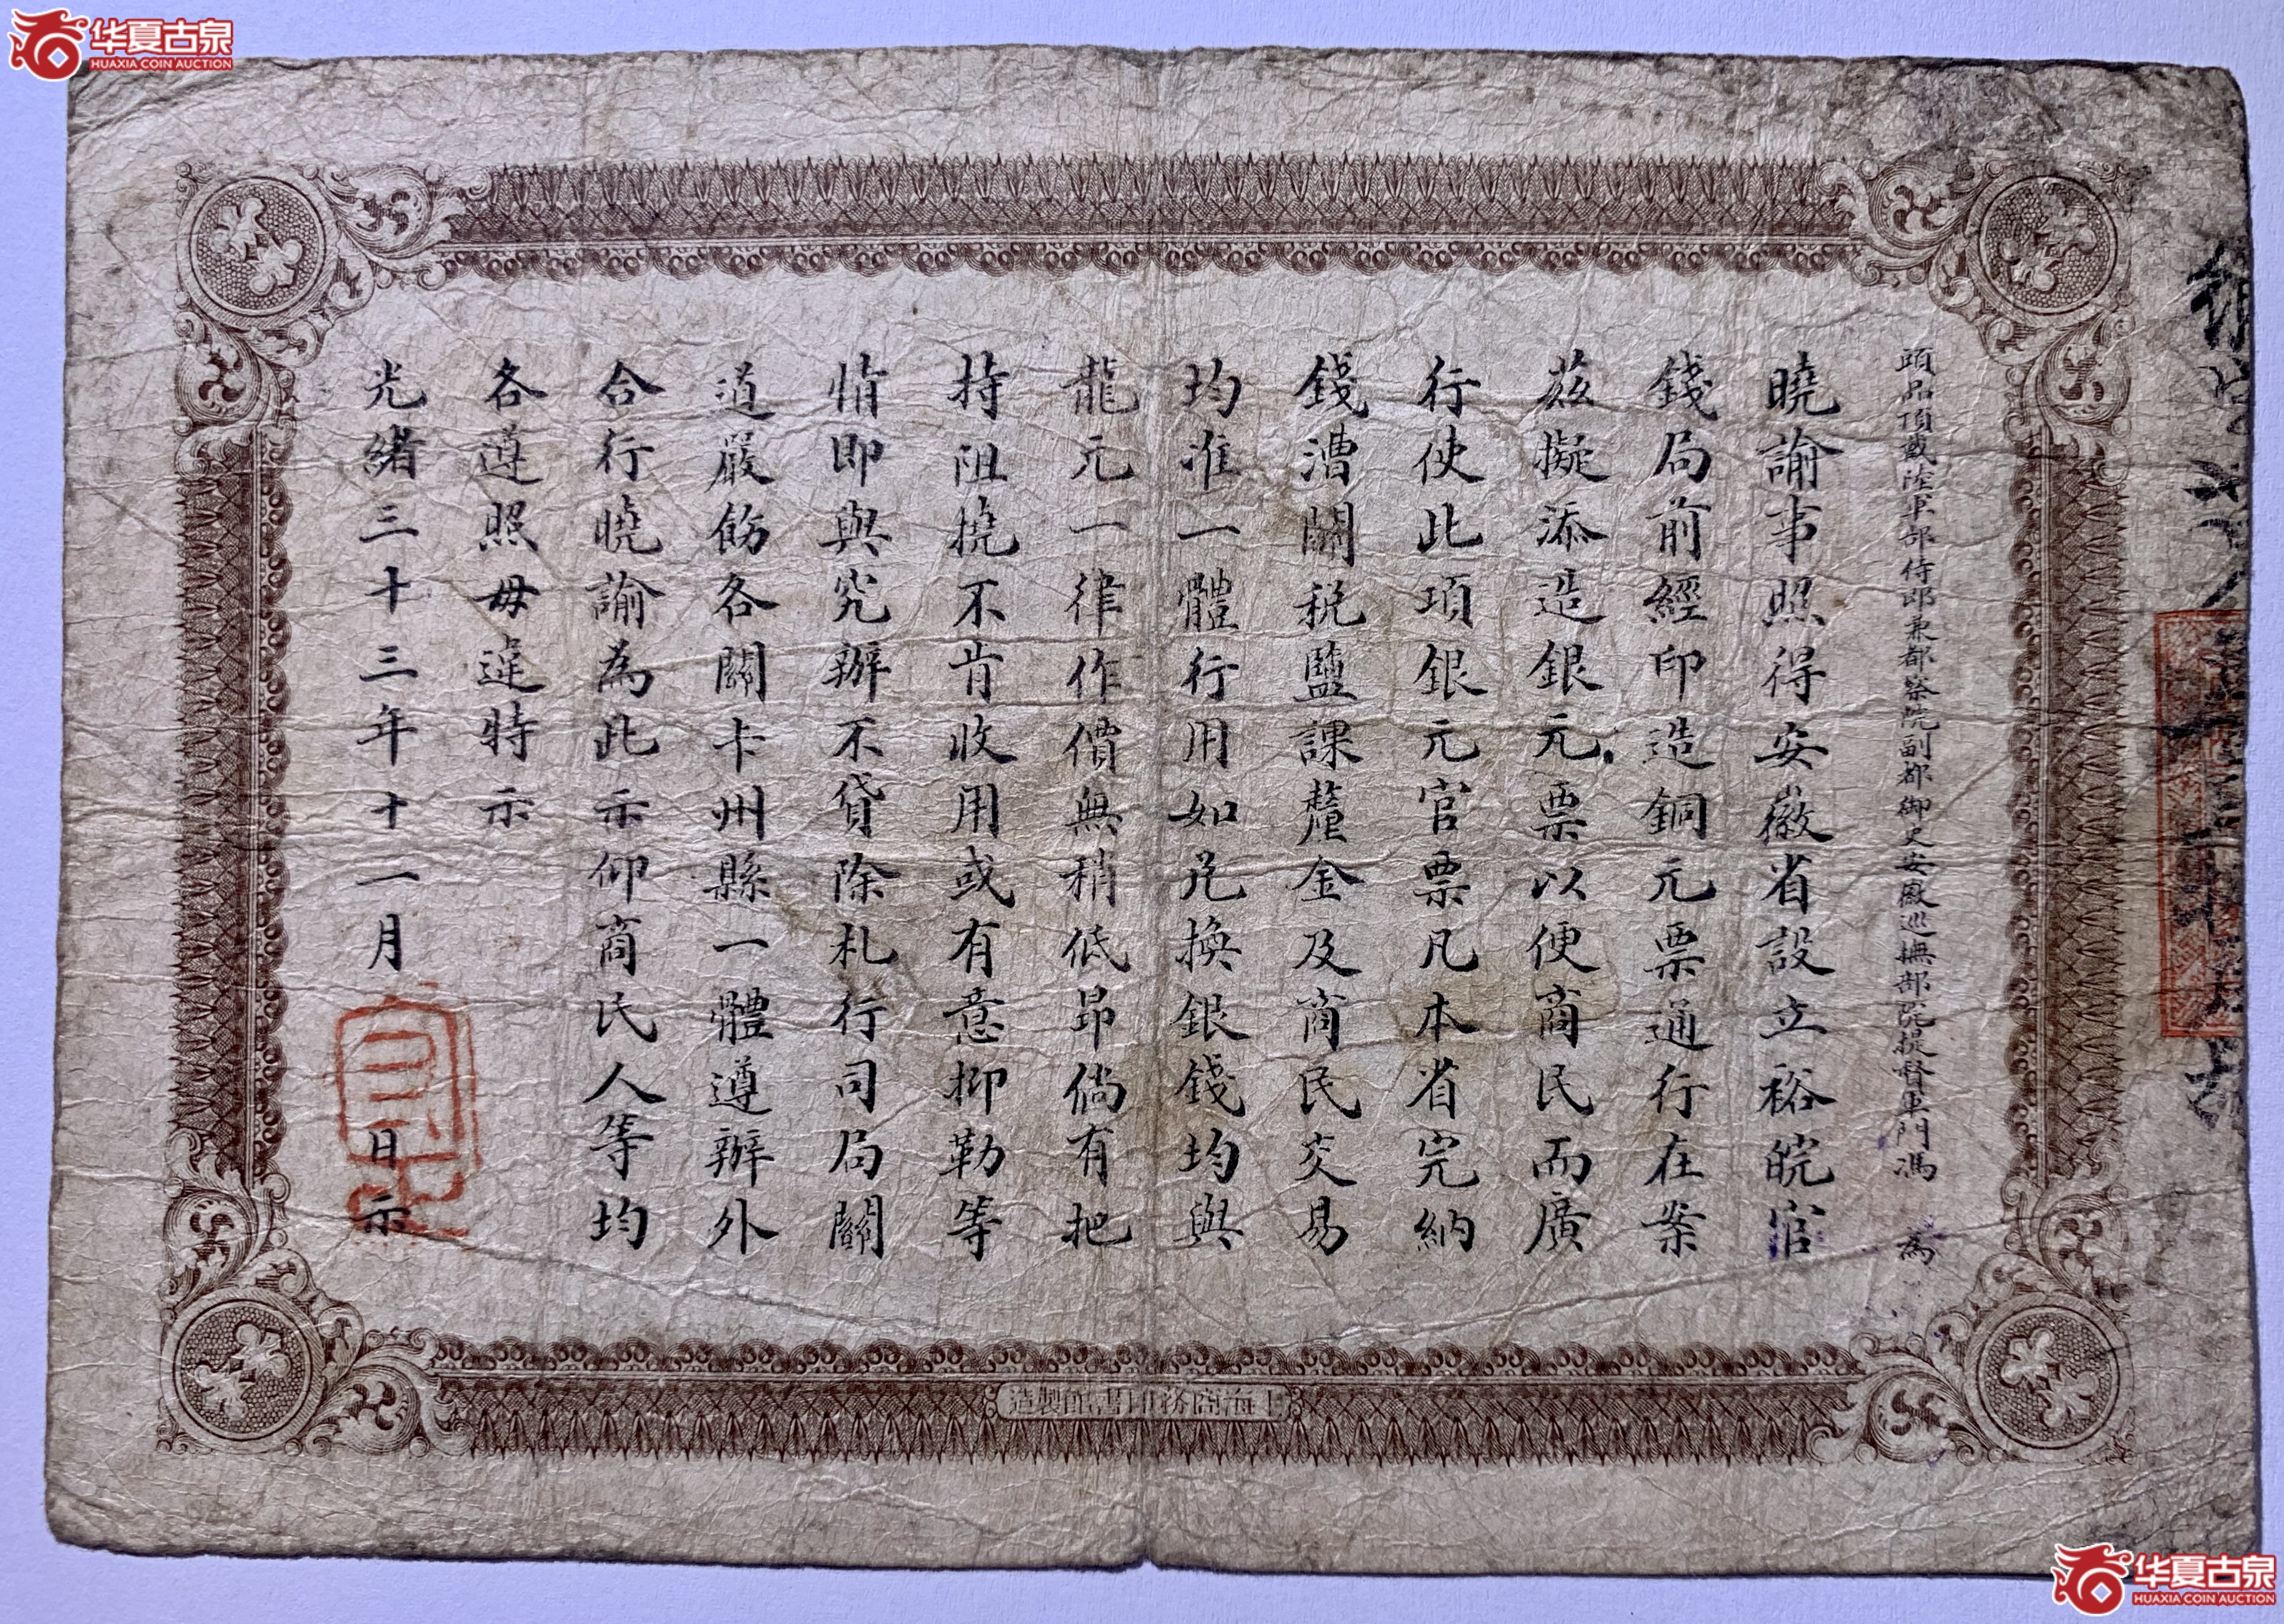 华夏古泉
HUAXIA COIN AUCTION
頭品頂戴陸軍部侍郎兼都察院副都御史安徽巡撫部院提督軍門馮 為
曉諭事照得安徽省設立裕皖官
錢局前經印造銅元票通行在案
茲擬添造銀元票以便商民而廣
行使此項銀元官票凡本省完納
錢漕關稅鹽課釐金及商民交易
均准一體行用如兌換銀錢均與
龍元一律作價無稍低昂倘有把
持阻撓不肯收用或有意抑勒等
情即與究辦不貸除札行司局關
道嚴飭各關卡州縣一體遵辦外
合行曉諭為此示仰商民人等均
各遵照毋違特示
光緒三十三年十一月 日示
造製館書印務商海上
华夏古泉
HUAXIA COIN AUCTION